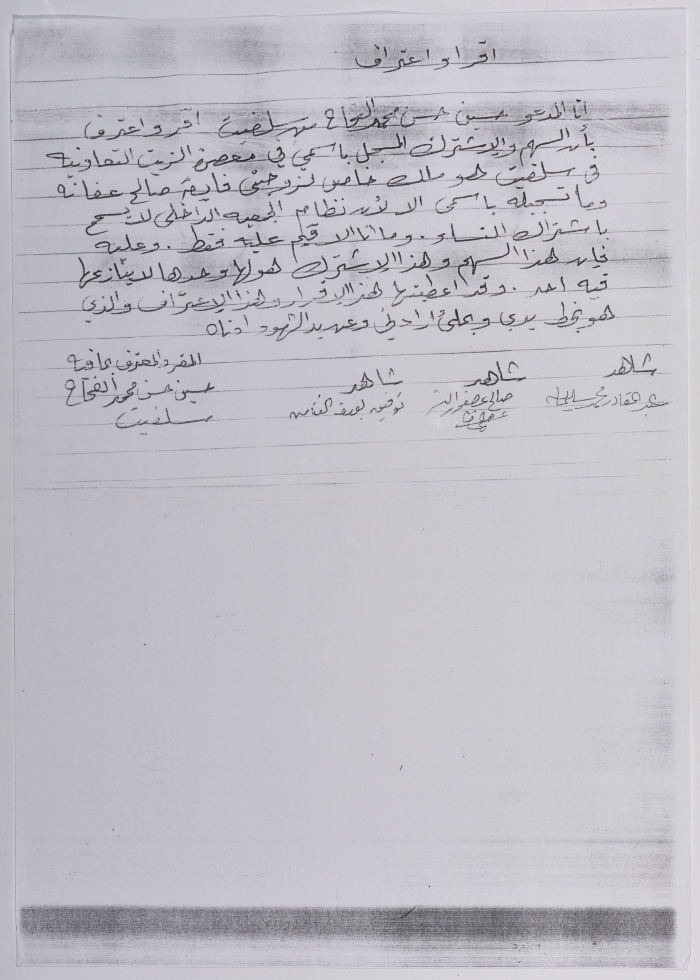 اقرار واعتراف
انا المدعو حسين حسن محمد الفحاح من سلفيت اقر واعترف
بأن السهم والاشتراك المسجل باسمي في معصرة الزيت التعاونية
في سلفيت هو ملك خاص لزوجتي فايقة صالح عفانه
وما تسجيله باسمي الا لأن نظام الجمعيه الداخلي لا يسمح
باشتراك النساء. وما انا الا قيم عليه فقط. وعليه
فإن هذا السهم وهذا الاشتراك هو لها وحدها لا ينازعها
فيه احد. وقد اعطيتها هذا الاقرار وهذا الاعتراف والذي
هو بخط يدي وبملئ ارادتي وعلى يد الشهود ادناه
شاهد شاهد شاهد المقر والمعترف بما فيه
عبد القادر صالح توفيق يوسف حسين حسن محمد الفحاح
سلفيت